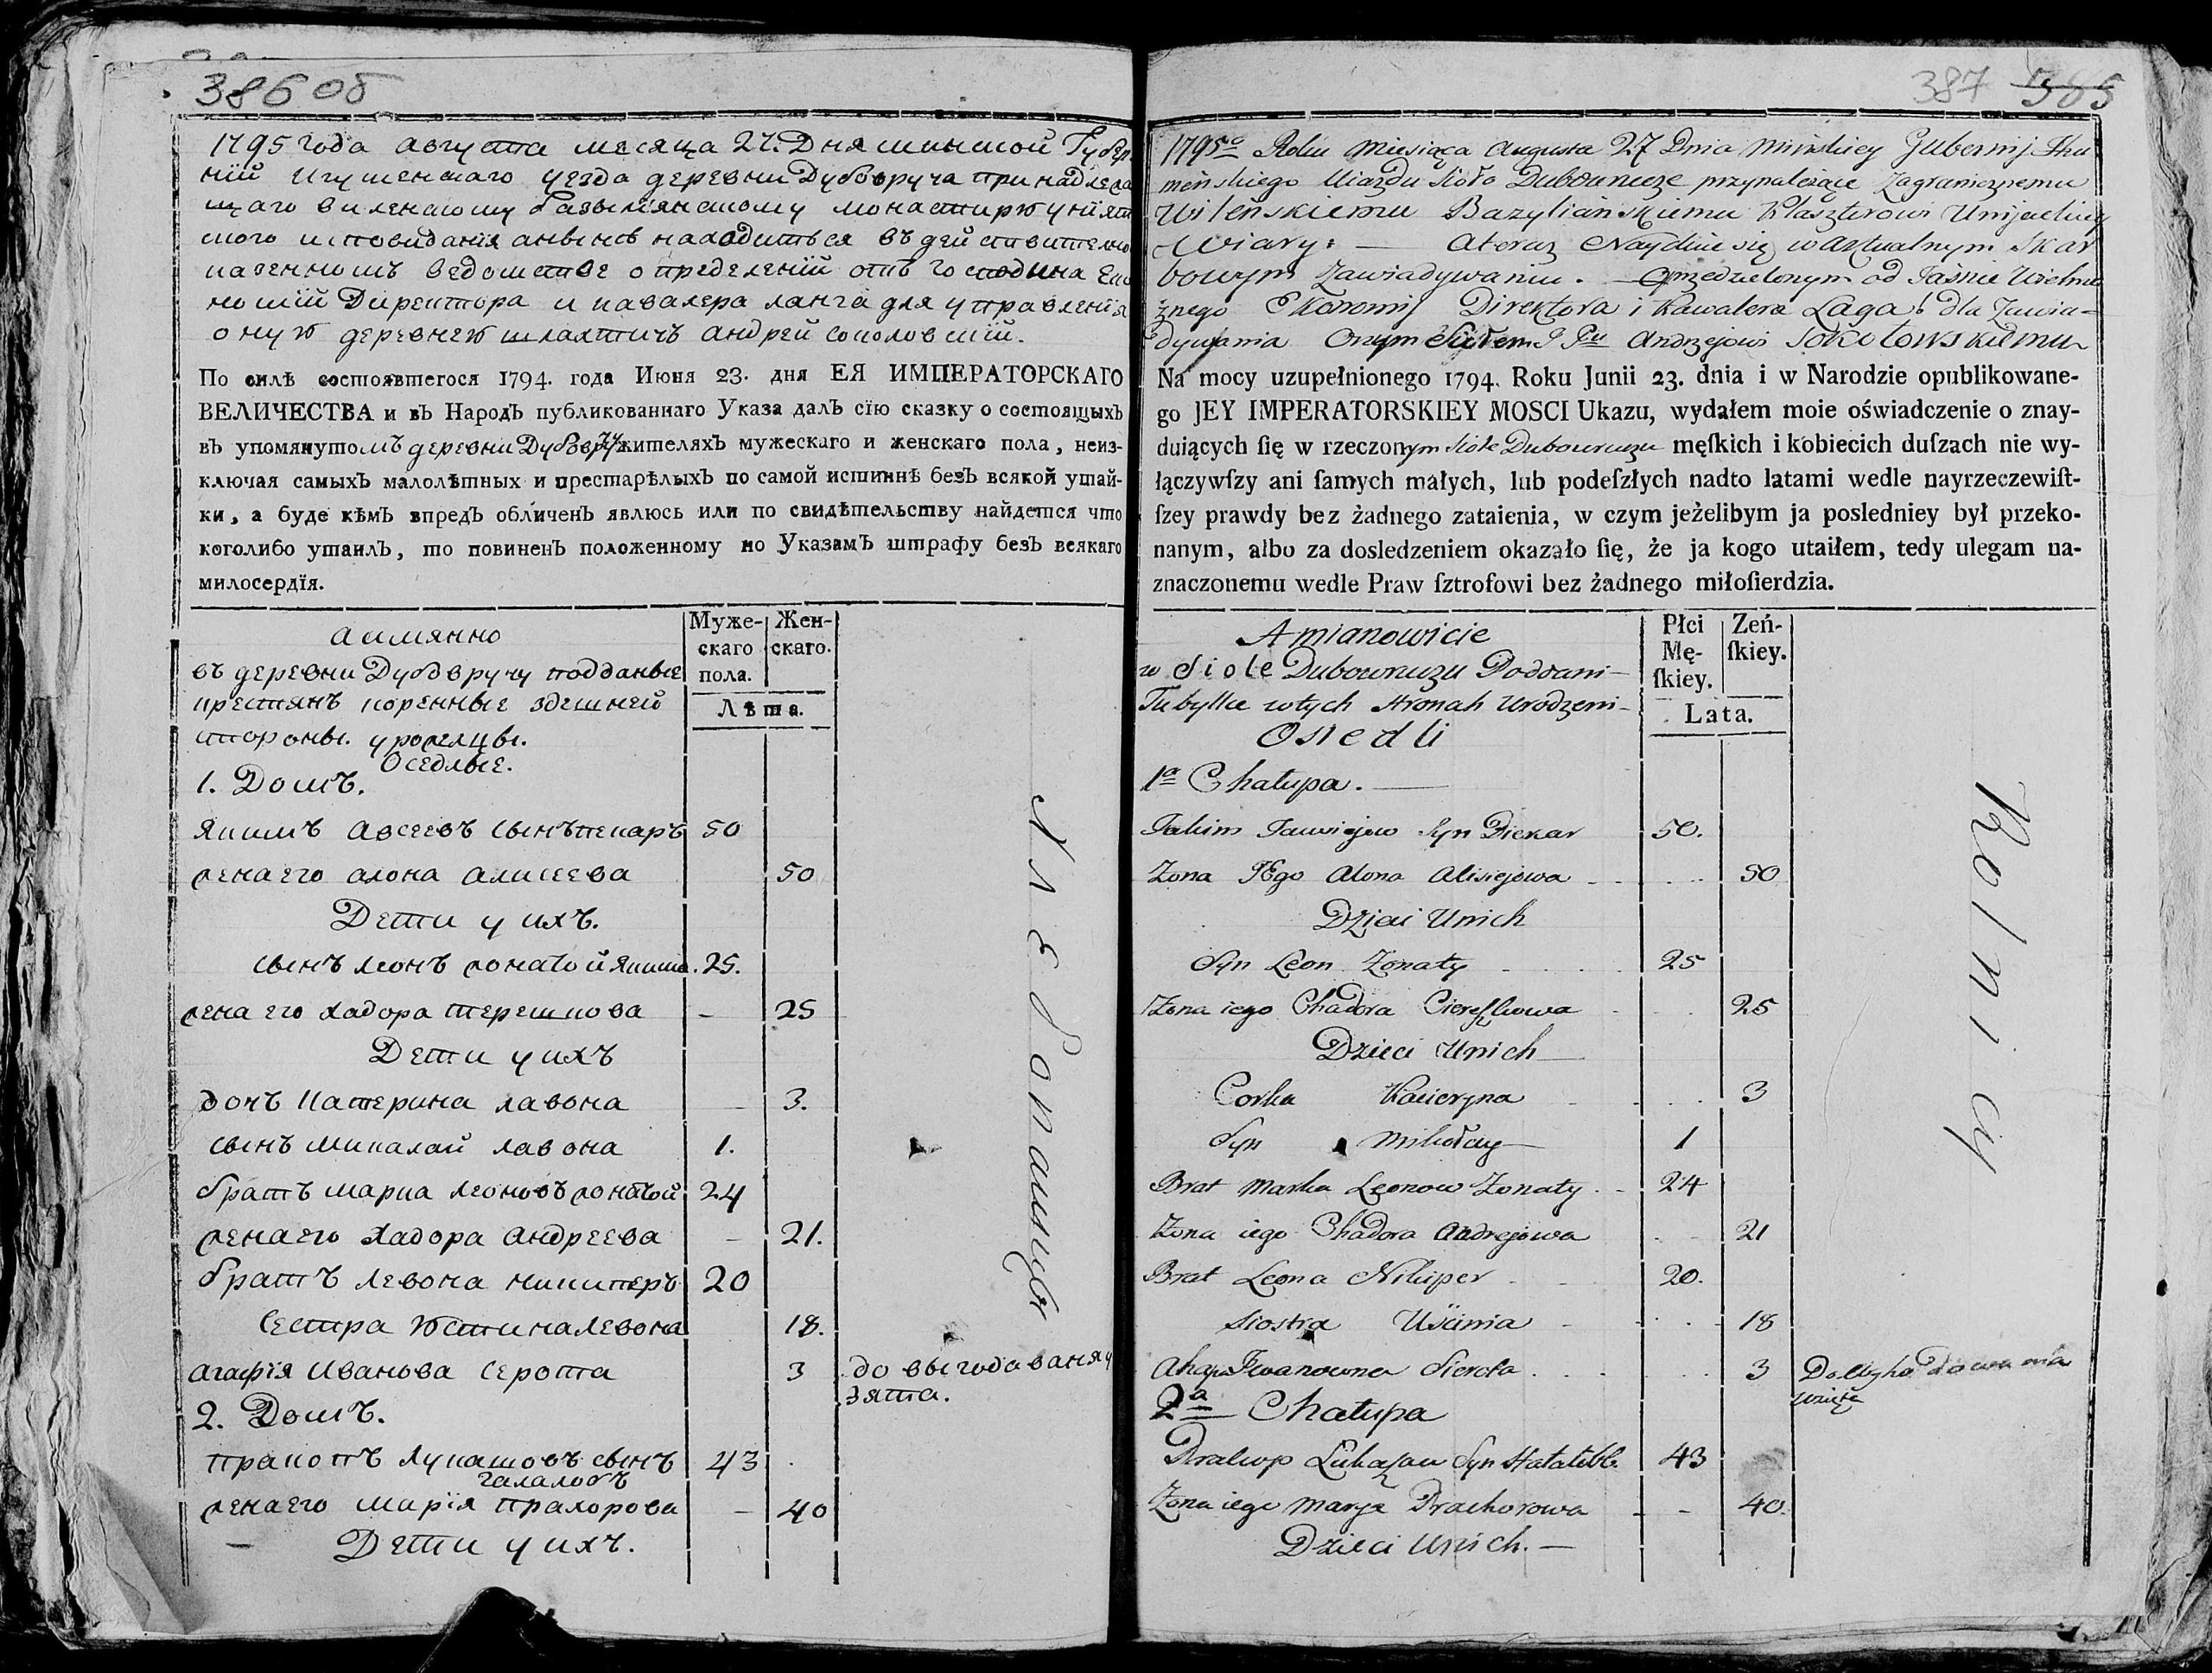 386 об
1795 года августа месяца 27. Дня минской Губер
нїй Игуменскаго уезда деревни Дубовруча принадлежа
щаго виленскому базылїянскому монастирю унїят
ского исповиданїя а нынѣ находиться въ действително
казенномъ ведомстве определенїй отъ господина Еко
номїй Директора и кавалера ланга для управленїя
оную деревнею шляхтичъ андрей соколовскїй.
По силѣ состоявшегося 1794. года Июня 23. дня ЕЯ ИМПЕРАТОРСКАГО
ВЕЛИЧЕСТВА и въ Народъ публикованнаго Указа далъ сїю сказку о состоящыхъ
въ упомянутомъ деревни Дубовручу жителяхъ мужескаго и женскаго пола, неиз-
ключая самыхъ малолѣтныхъ и престарѣлыхъ по самой истиннѣ безъ всякой утай-
ки, а буде кѣмъ впредъ обличенъ явлюсь или по свидѣтельству найдется что
коголибо утаилъ, то повиненъ положенному по Указамъ штрафу безъ всякаго
милосердїя.
аимянно
Муже-
скаго
пола.
Жен-
скаго.
Лѣта.
въ деревни Дубовручу подданые
крестянъ коренные здешней
стороны. урожелцы.
Оседлые.
1. Домъ.
Якимъ Авсеевъ сынъ пекаръ 50
жена его алона алисеева 50
Дети у ихъ.
сынъ леонъ жонатой Якима. 25.
жена его хадора терешкова – 25
Дети у ихъ
дочъ Катерина лавона – 3.
сынъ микалай лавона 1.
братъ марка леоновъ жонатой 24
жена его хадора андреева – 21.
братъ левона никиперъ 20
Сестра Юстина левона 18.
агафїя Иванова серота 3 до выгодаваняу
зята.
2. Домъ.
пракопъ лукашовъ сынъ 43
галалобъ
жена его марїя прахорова – 40
– Дети у ихъ.
Хлебопашцы
387 385
1795º Roku Miesiąca Augusta 27 Dnia Mińskiey Gubernij Ihu
meńskiego Uiazdu Sioło Dubowrucze przynależące Zagranicznemu
Wileńskiemu Bazyliańskiemu Klasztorowi Unijackiey
Wiary: — A teraz Nayduie się w aktualnym Skar
bowym Zawiadywaniu. — Oprzedzielonym od Jasnie Wielmo
żnego Ekonomij Direktora i Kawalera Laga! dla Zawia-
dywania Onym Siołem Andrzejowi Sokołowskiemu
Na mocy uzupełnionego 1794. Roku Junii 23. dnia i w Narodzie opublikowane-
go JEY IMPERATORSKIEY MOSCI Ukazu, wydałem moie oświadczenie o znay-
duiących ſię w rzeczonym Siole Dubowruczu męſkich i kobiecich duſzach nie wy-
łączywſzy ani ſamych małych, lub podeſzłych nadto latami wedle nayrzeczewiſt-
ſzey prawdy bez żadnego zataienia, w czym jeżelibym ja posledniey był przeko-
nanym, albo za dosledzeniem okazało ſię, że ja kogo utaiłem, tedy ulegam na-
znaczonemu wedle Praw ſztrofowi bez żadnego miłoſierdzia.
Amianowicie
Płci
Mę-
ſkiey.
Zeń-
ſkiey.
Lata.
w Siole Dubowruczu Poddani –
Tubylce w tych Stronah Urodzeni –
Osiedli
1ª Chałupa. —
Jakim Jawsiejew Syn Piekar 50.
Zona JEgo Alona Alisiejowa 50
Dzieci Unich
Syn Leon Zonaty 25
Zona iego Chadora Ciereszkowa 25
Dzieci Unich
Corka Kacieryna 3
Syn Mikołay 1
Brat Marka Leonow Zonaty 24
Zona iego Chadora Andrejewa 21
Brat Leona Nikiper 20.
Siostra Uscinia 18
Ahap Iwanowna Sierota 3 Do Wyhadowania
wzięta
2ª Chałupa
Prakop Łukaszau Syn 43
Zona iego Marya Prachorowa 40.
Dzieci Unich. —
Rolnicy